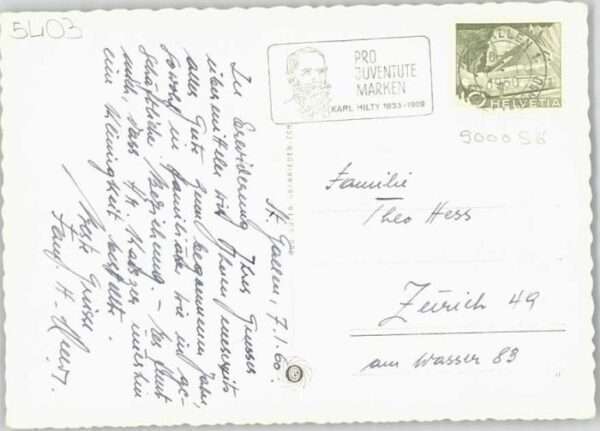 5403
PRO
JUVENTUTE
MARKEN
KARL HILTY 1833-1909
HELVETIA
9000 SG
St. Gallen, 7.1.60.
In Erwiderung Ihres Grusses
übermitteln wir Ihnen unserseits
alles Gute zum begonnenen Jahr,
sowohl in familiärer wie in ge-
schäftlicher Beziehung. – Es
auch, dass Hr.
eine Kleinigkeit bestellte.
Beste Grüsse
Fam. H.
Familie
Theo Hess
Zürich 49
am Wasser 83